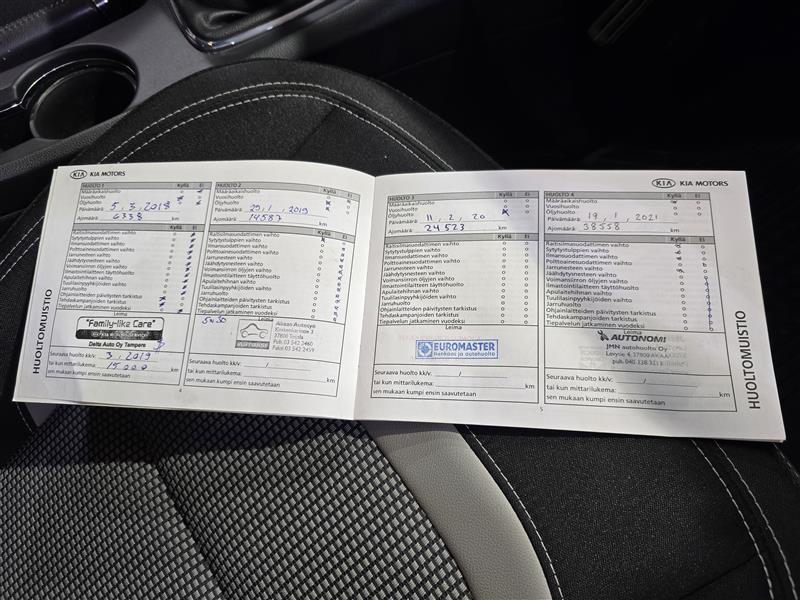 KIA KIA MOTORS
HUOLTO 1 Kyllä Ei
Määräaikaishuolto
Vuosihuolto
Öljyhuolto
Päivämäärä 5.3.2018
Ajomäärä: 6338 km
Raitisilmasuodattimen vaihto
Sytytystulppien vaihto
Ilmansuodattimen vaihto
Polttoainesuodattimen vaihto
Jarrunesteen vaihto
Jäähdytysnesteen vaihto
Voimansiirron öljyjen vaihto
Ilmastointilaitteen täyttöhuolto
Apulaitehihnan vaihto
Tuulilasipyyhkijöiden vaihto
Jarruhuolto
Ohjainlaitteiden päivitysten tarkistus
Tehdaskampanjoiden tarkistus
Tiepalvelun jatkaminen vuodeksi
Leima
"Family-like Care"
Delta Auto Oy Tampere
Seuraava huolto kk/v: 3.2019
tai kun mittarilukema: 15000 km
sen mukaan kumpi ensin saavutetaan
HUOLTOMUISTIO
4
HUOLTO 2 Kyllä Ei
Määräaikaishuolto
Vuosihuolto
Öljyhuolto
Päivämäärä: 29.1.2019
Ajomäärä: 14587 km
Raitisilmasuodattimen vaihto
Sytytystulppien vaihto
Ilmansuodattimen vaihto
Polttoainesuodattimen vaihto
Jarrunesteen vaihto
Jäähdytysnesteen vaihto
Voimansiirron öljyjen vaihto
Ilmastointilaitteen täyttöhuolto
Apulaitehihnan vaihto
Tuulilasipyyhkijöiden vaihto
Jarruhuolto
Ohjainlaitteiden päivitysten tarkistus
Tehdaskampanjoiden tarkistus
Tiepalvelun jatkaminen vuodeksi
Leima
5W30
37800
Puh.03 542 2460
Faksi 03 542 2459
Seuraava huolto kk/v: /
tai kun mittarilukema: km
sen mukaan kumpi ensin saavutetaan
KIA KIA MOTORS
HUOLTO 3 Kyllä Ei
Määräaikaishuolto
Vuosihuolto
Öljyhuolto
Päivämäärä: 11, 2, 20
Ajomäärä: 24523 km
Raitisilmasuodattimen vaihto
Sytytystulppien vaihto
Ilmansuodattimen vaihto
Polttoainesuodattimen vaihto
Jarrunesteen vaihto
Jäähdytysnesteen vaihto
Voimansiirron öljyjen vaihto
Ilmastointilaitteen täyttöhuolto
Apulaitehihnan vaihto
Tuulilasipyyhkijöiden vaihto
Jarruhuolto
Ohjainlaitteiden päivitysten tarkistus
Tehdaskampanjoiden tarkistus
Tiepalvelun jatkaminen vuodeksi
Leima
EUROMASTER
Renkaat ja autohuolto
Seuraava huolto kk/v: /
tai kun mittarilukema: km
sen mukaan kumpi ensin saavutetaan
5
HUOLTO 4 Kyllä Ei
Määräaikaishuolto
Vuosihuolto
Öljyhuolto
Päivämäärä: 19, 1, 2021
Ajomäärä: 38558 km
Raitisilmasuodattimen vaihto
Sytytystulppien vaihto
Ilmansuodattimen vaihto
Polttoainesuodattimen vaihto
Jarrunesteen vaihto
Jäähdytysnesteen vaihto
Voimansiirron öljyjen vaihto
Ilmastointilaitteen täyttöhuolto
Apulaitehihnan vaihto
Tuulilasipyyhkijöiden vaihto
Jarruhuolto
Ohjainlaitteiden päivitysten tarkistus
Tehdaskampanjoiden tarkistus
Tiepalvelun jatkaminen vuodeksi
Leima
AUTONOMI
JMN autohuolto Oy
Seuraava huolto kk/v: /
tai kun mittarilukema: km
sen mukaan kumpi ensin saavutetaan
HUOLTOMUISTIO